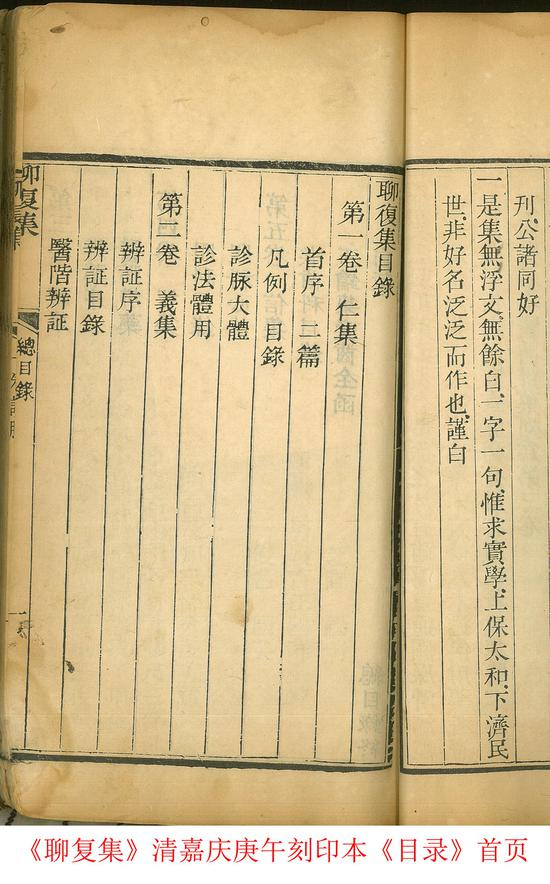 刋、公諸同好
一是集無浮文、無餘白、一字一句、惟求實學、上保太和、下濟民
世、非好名泛泛而作也、謹白
聊復集目錄
第一卷 仁集
首序 二篇
凡例 目錄
診脉大體
診法體用
第二卷 義集
辨証序
辨証目錄
醫階辨証
聊復集
總目錄
一
《聊复集》清嘉庆庚午刻印本《目录》首页